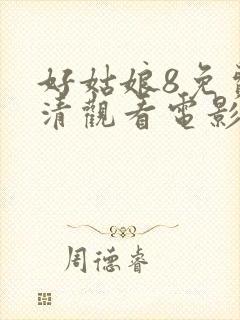 好姑娘8免
清觀看電影
周德睿